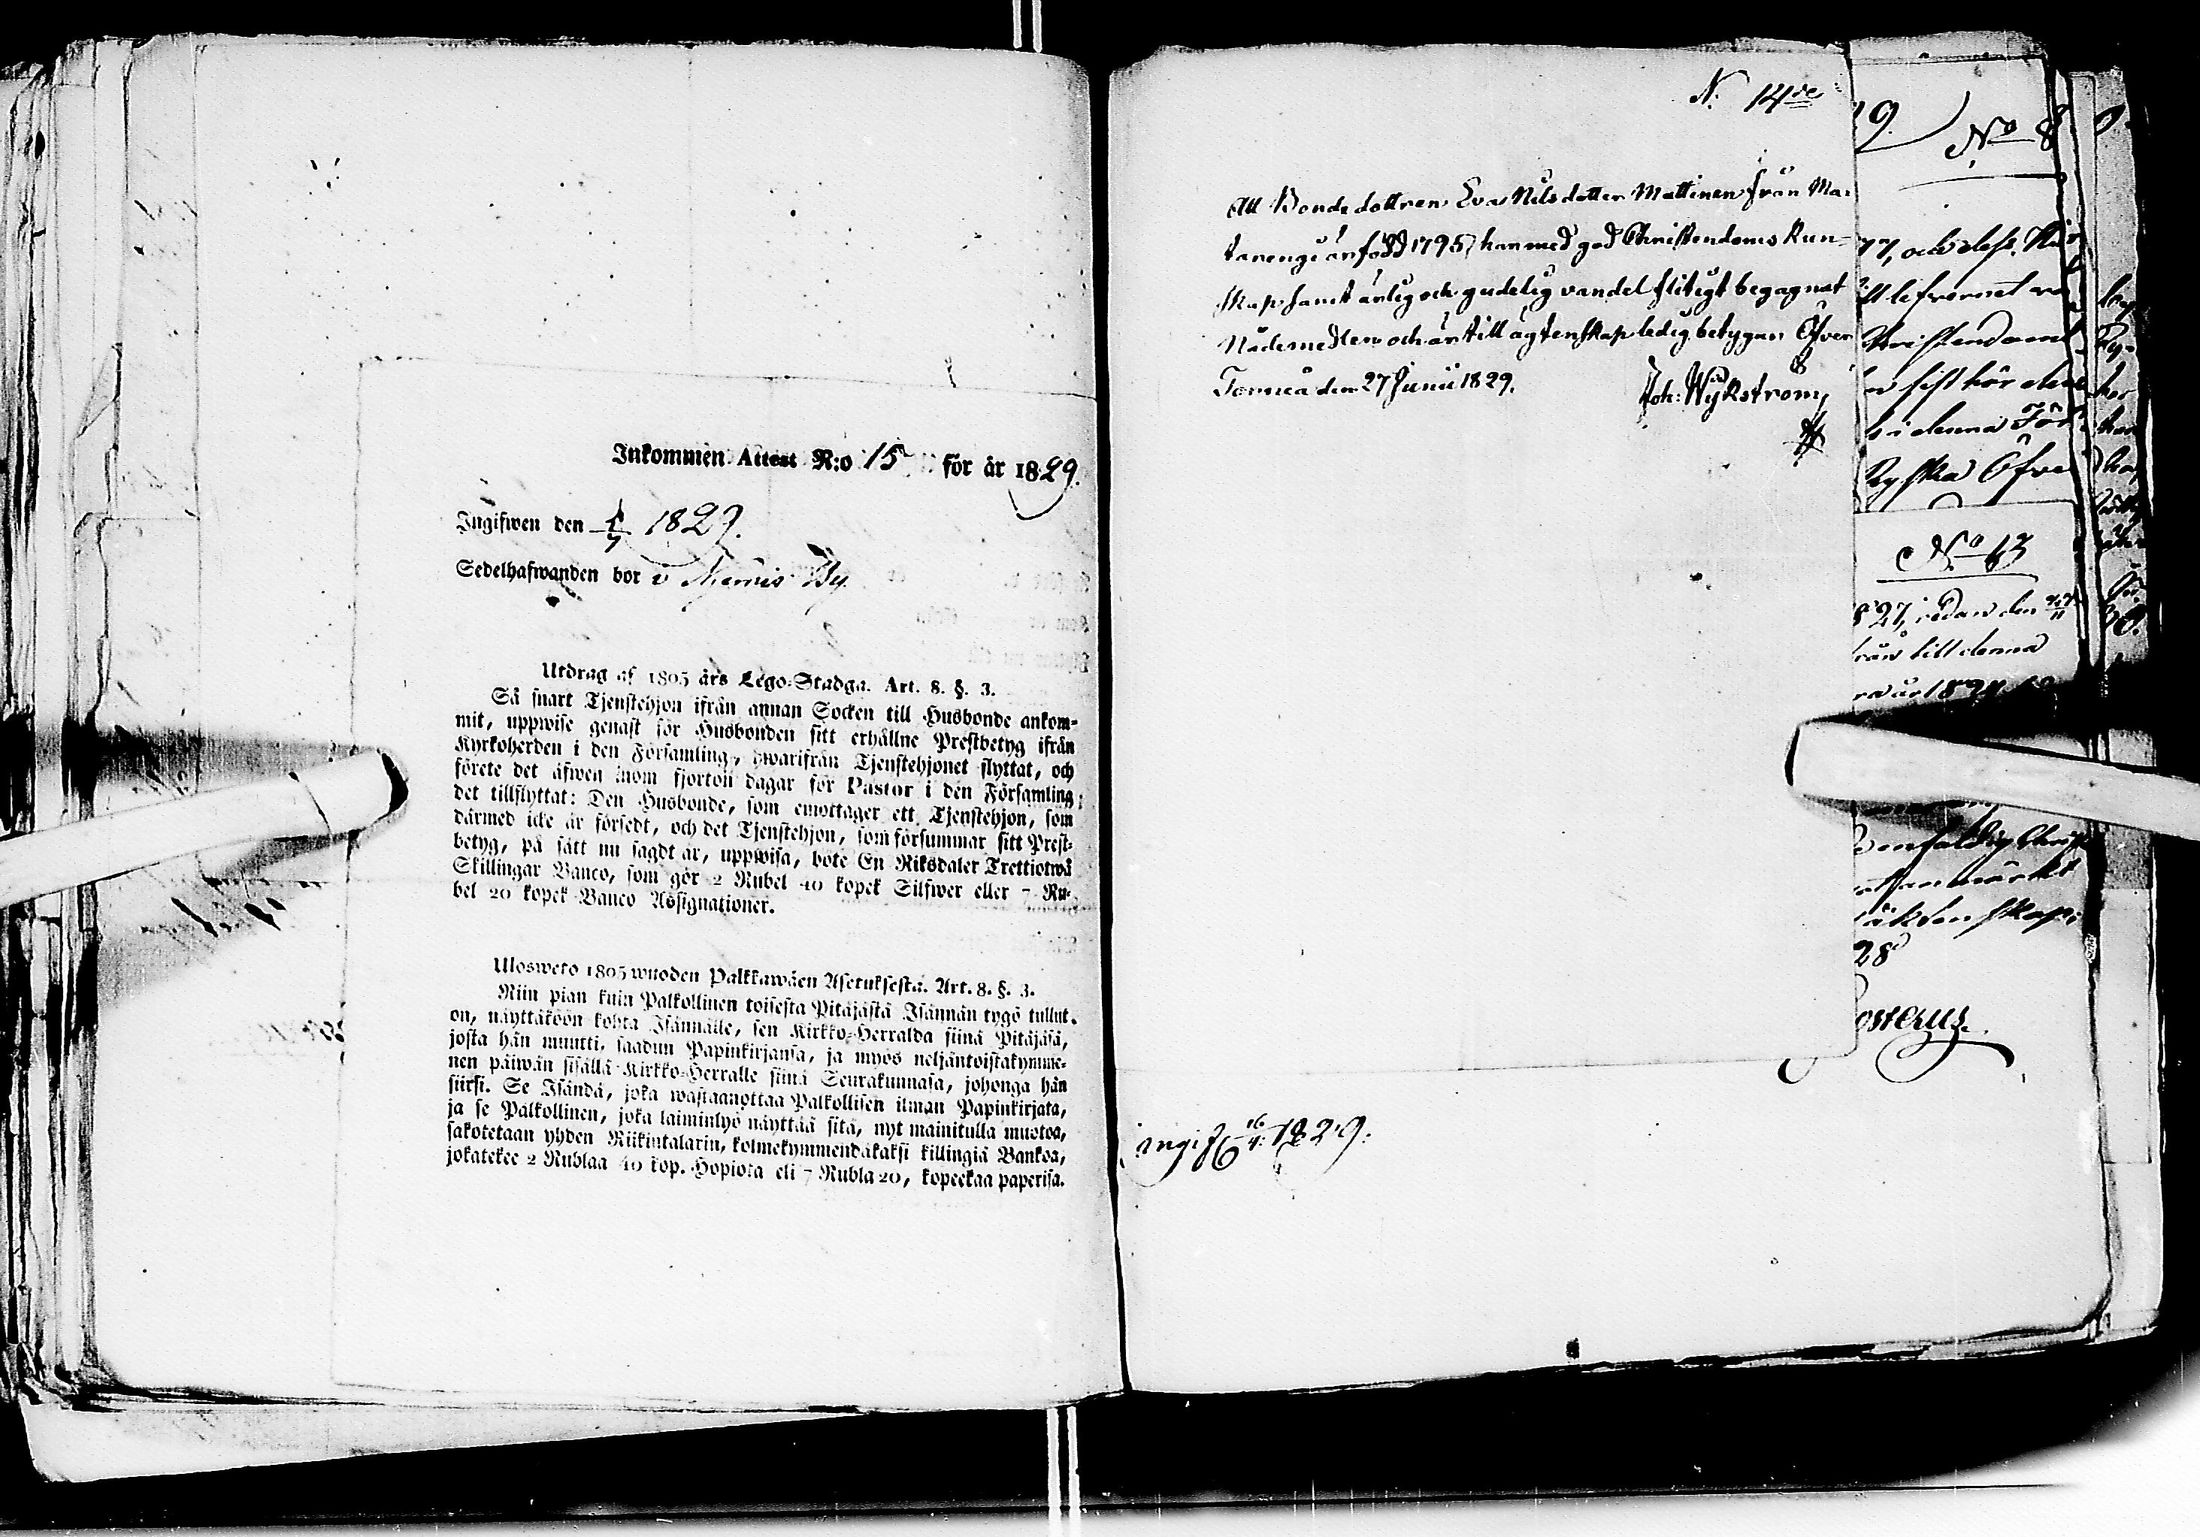 Inkommen Attest N:o 15 för år 1829.
Ingifwen den 5/7 1829.
Sedelhafwanden bor i Niemis By.
Utdrag af 1805 års Lego-Stadga. Art. 8. §. 3.
Så snart Tjenstehjon ifrån annan Socken till Husbonde ankom-
mit, uppwise genast för Husbonden sitt erhållne Prestbetyg ifrån
Kyrkoherden i den Församling, hwarifrån Tjenstehjonet flyttat, och
förete det äfwen inom fjorton dagar för Pastor i den Församling
det tillflyttat: Den Husbonde, som emottager ett Tjenstehjon, som
därmed icke är försedt, och det Tjenstehjon, som försummar sitt Prest-
betyg, på sätt nu sagdt är, uppwisa, böte En Riksdaler Trettiotwå
Skillingar Banco, som gör 2 Rubel 40 kopek Silfwer eller 7 Ru-
bel 20 kopek Banco Assignationer.
Ulosweto 1805 wuoden Palkkawäen Asetuksesta. Art. 8. §. 3.
Niin pian kuin Palkollinen toisesta Pitäjästä Isännän tygö tullut
on, näyttäköön kohta Isännälle, sen Kirkko-Herralda siinä Pitäjäsä,
josta hän muutti, saadun Papinkirjansa, ja myös neljäntoistakymme-
nen päiwän sisällä Kirkko-Herralle siinä Seurakunnasa, johonga hän
siirsi. Se Isändä, joka wastaanottaa Palkollisen ilman Papinkirjata,
ja se Palkollinen, joka laiminlyö näyttää sitä, nyt mainitulla muotoa,
sakotetaan yhden Riikintalarin, kolmekymmendäkaksi killingiä Bankoa,
jokatekee 2 Rublaa 40 kop. Hopiota eli 7 Rubla 20, kopeekaa paperisa.
N: 14de
Att Bonde dottren Eva Nils dotter Mattinen från Ma-
tarengi är född 1795, har med god Christendoms kun-
skap samt ärlig och gudelig vandel flitigt begagnat
Nådemedlen och är till ägtenskap ledig, betygar Öfver
Torneå den 27 Junii 1829.
Joh: Wijkstrom
ingif 16/4. 1829.
9.
No 8
77, och dess
lefvernet
Christendom
sist hör
i denna För
Ryska Öfve
No 13
827, sedan den
från till denna
enfaldig Christ
anmärkt
äktenskap
28
osterus.